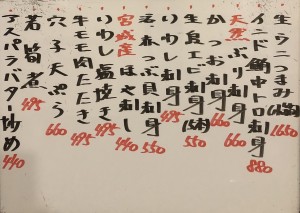 生ウニつまみ(小箱) 1650
インド鮪中トロ刺身 880
天然ぶり刺身 660
かつお刺身 660
生食エビ刺身(5本) 550
いわし刺身 495
青つぶ貝刺身 550
宮城産ほや刺し 440
いわし塩焼き 495
牛モモ肉たたき 495
穴子天ぷら 660
若筍煮 495
アスパラバター炒め 440